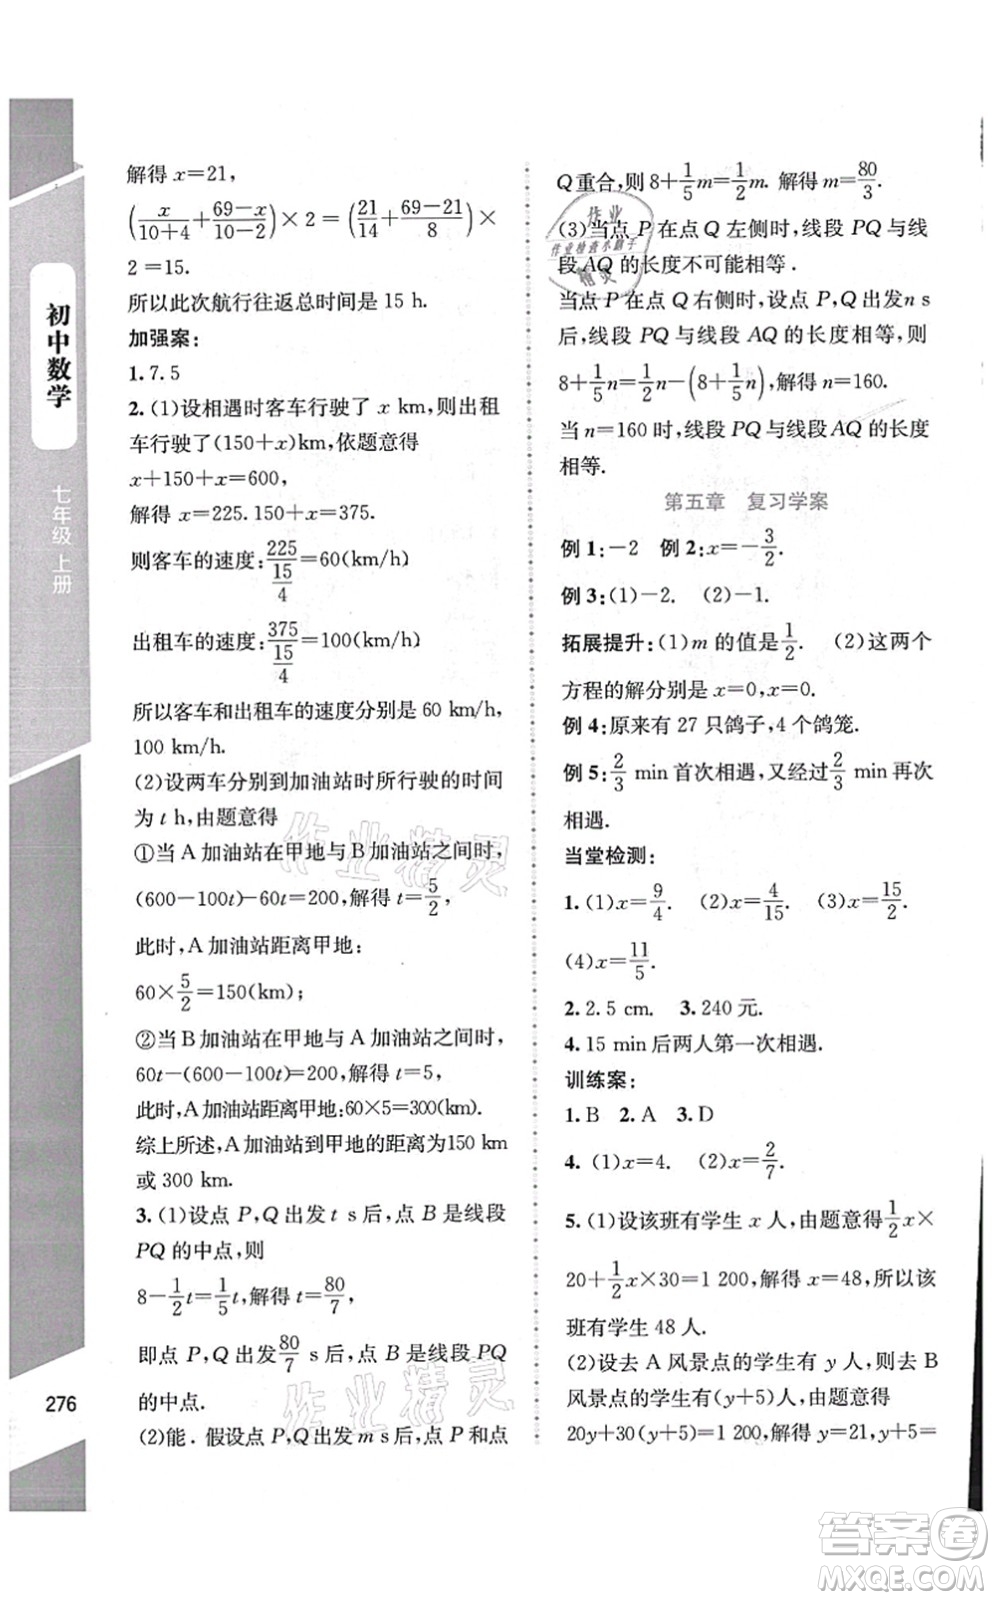 初中数学
七年级 上册
276
解得 x=21,
(x/(10+4)+(69-x)/(10-2))×2=(21/14+(69-21)/8)×
2=15.
所以此次航行往返总时间是 15 h.
加强案:
1. 7.5
2. (1)设相遇时客车行驶了 x km,则出租
车行驶了(150+x)km,依题意得
x+150+x=600,
解得 x=225. 150+x=375.
则客车的速度:225/(15/4)=60(km/h)
出租车的速度:375/(15/4)=100(km/h)
所以客车和出租车的速度分别是 60 km/h,
100 km/h.
(2)设两车分别到加油站时所行驶的时间
为 t h,由题意得
①当 A 加油站在甲地与 B 加油站之间时,
(600-100t)-60t=200,解得 t=5/2,
此时,A 加油站距离甲地:
60×5/2=150(km);
②当 B 加油站在甲地与 A 加油站之间时,
60t-(600-100t)=200,解得 t=5,
此时,A加油站距离甲地:60×5=300(km).
综上所述,A 加油站到甲地的距离为150 km
或 300 km.
3. (1)设点 P,Q 出发 t s 后,点 B 是线段
PQ 的中点,则
8-1/2t=1/5t,解得 t=80/7,
即点 P,Q 出发 80/7 s 后,点 B 是线段 PQ
的中点.
(2)能. 假设点 P,Q 出发 m s 后,点 P 和点
Q重合,则 8+1/5m=1/2m. 解得 m=80/3.
(3)当点 P 在点 Q 左侧时,线段 PQ 与线
段 AQ 的长度不可能相等.
当点 P 在点 Q 右侧时,设点 P,Q 出发n s
后,线段 PQ 与线段 AQ 的长度相等,则
8+1/5n=1/2n-(8+1/5n),解得 n=160.
当 n=160 时,线段 PQ 与线段 AQ 的长度
相等.
第五章 复习学案
例 1:-2 例 2:x=-3/2.
例 3:(1)-2. (2)-1.
拓展提升:(1)m 的值是 1/2. (2)这两个
方程的解分别是 x=0,x=0.
例 4:原来有 27 只鸽子,4 个鸽笼.
例 5:2/3 min 首次相遇,又经过 2/3 min 再次
相遇.
当堂检测:
1. (1)x=9/4. (2)x=4/15. (3)x=15/2.
(4)x=11/5.
2. 2.5 cm. 3. 240 元.
4. 15 min后两人第一次相遇.
训练案:
1. B 2. A 3. D
4. (1)x=4. (2)x=2/7.
5. (1)设该班有学生 x 人,由题意得1/2x×
20+1/2x×30=1 200,解得 x=48,所以该
班有学生 48 人.
(2)设去 A 风景点的学生有 y 人,则去 B
风景点的学生有(y+5)人,由题意得
20y+30(y+5)=1 200,解得 y=21,y+5=
作业
作业检查小助手
精灵
作业精灵
作业精灵
答案卷
MXQE.COM